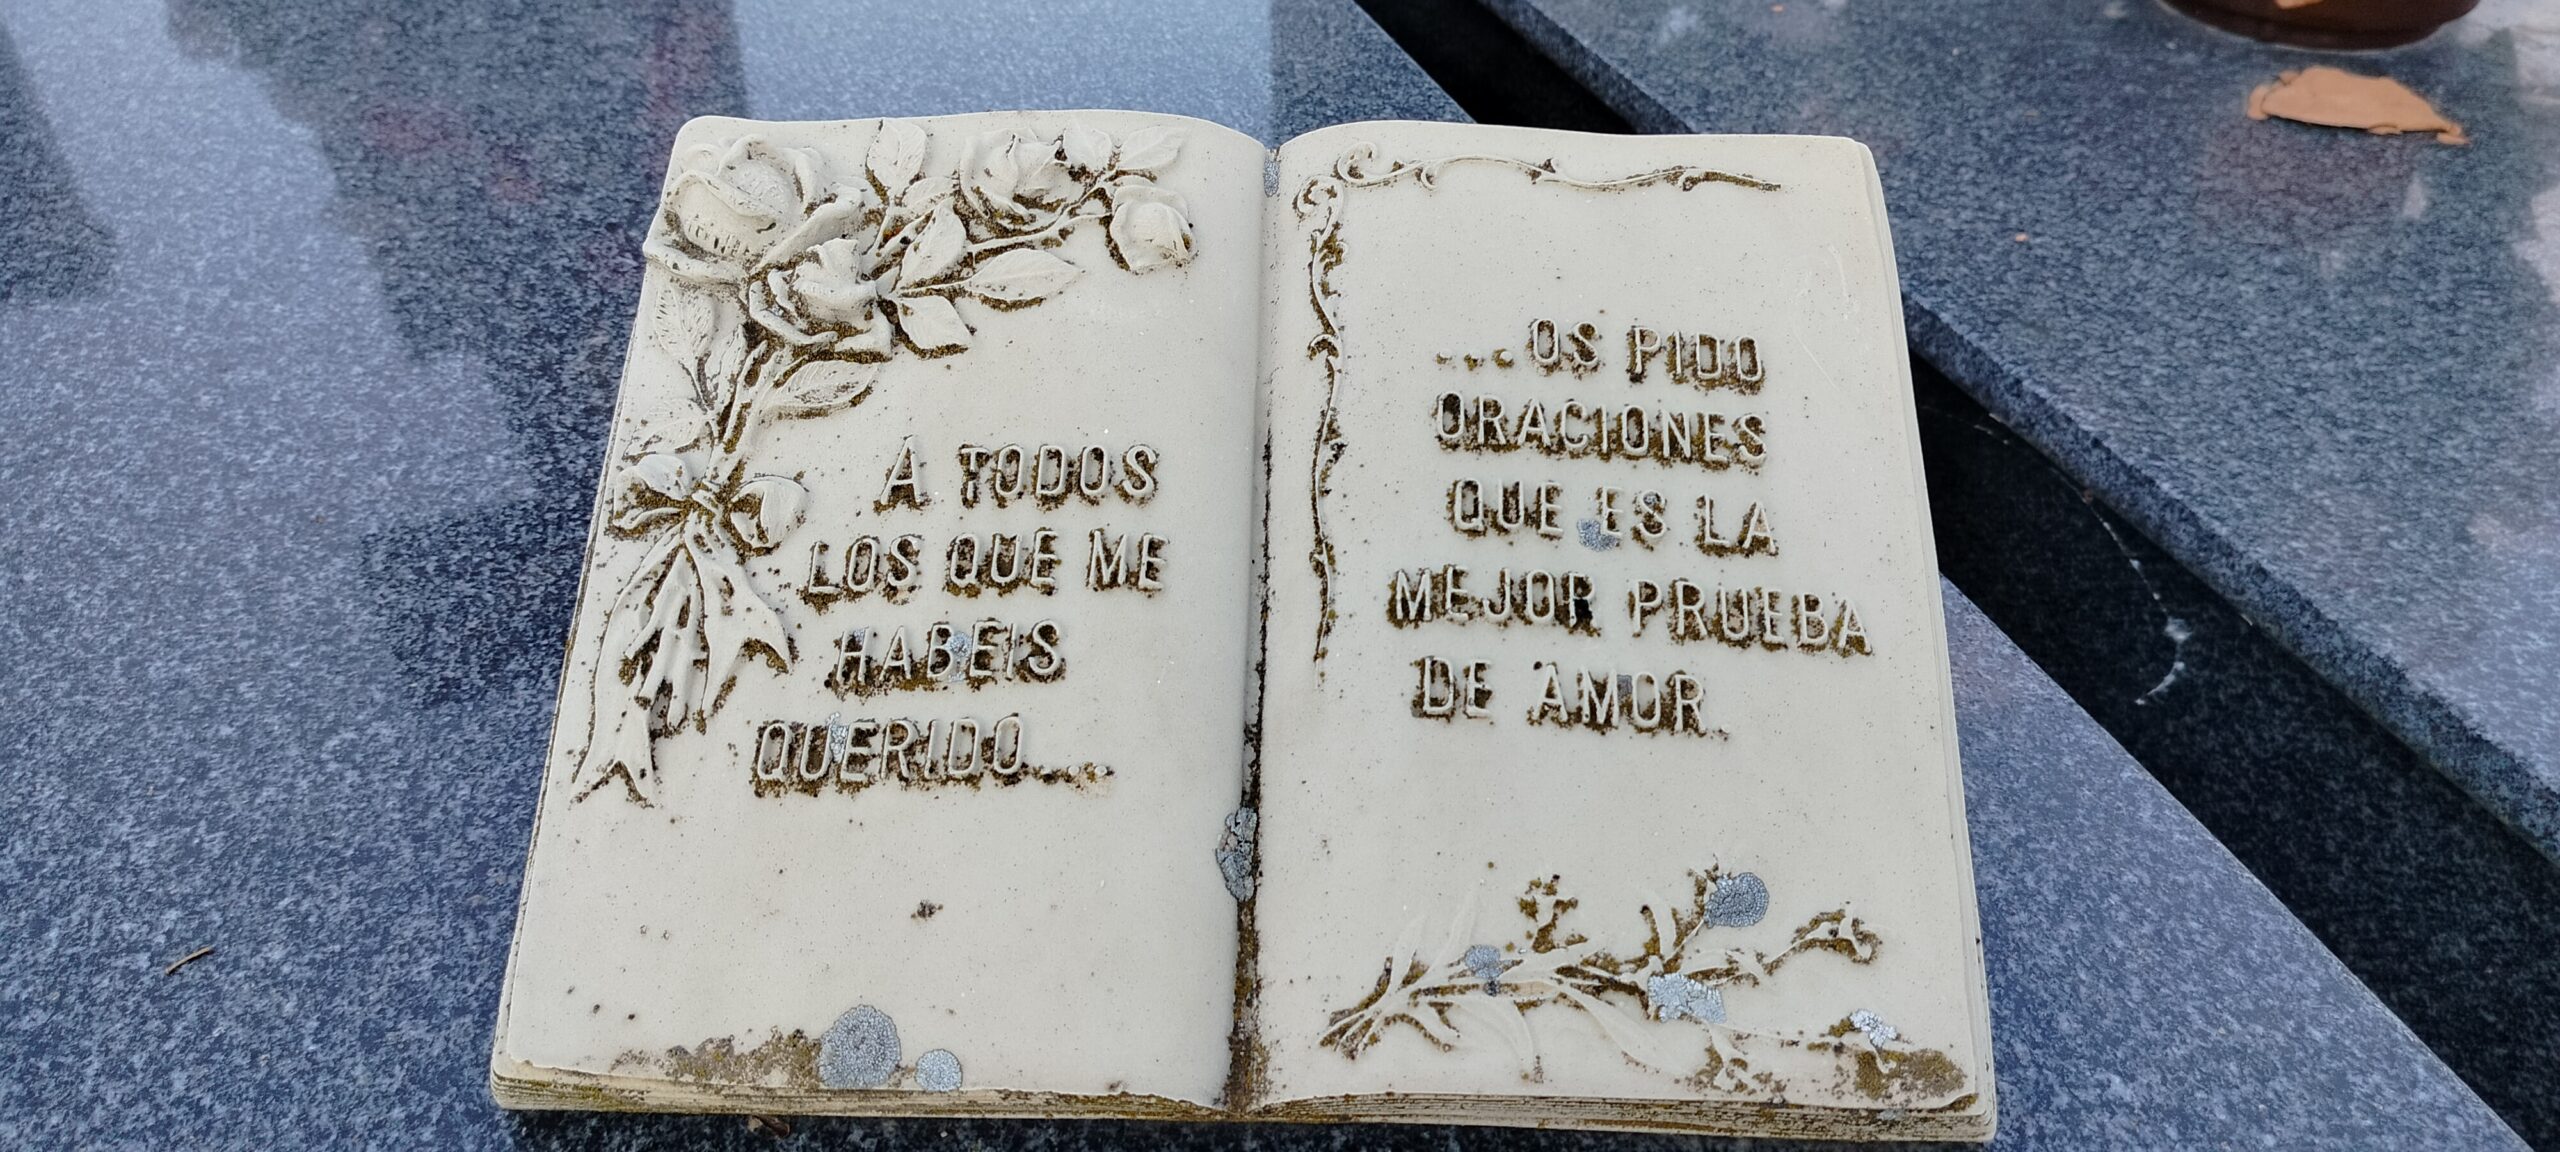 A TODOS
LOS QUE ME
HABEIS
QUERIDO....
...OS PIDO
ORACIONES
QUE ES LA
MEJOR PRUEBA
DE AMOR.